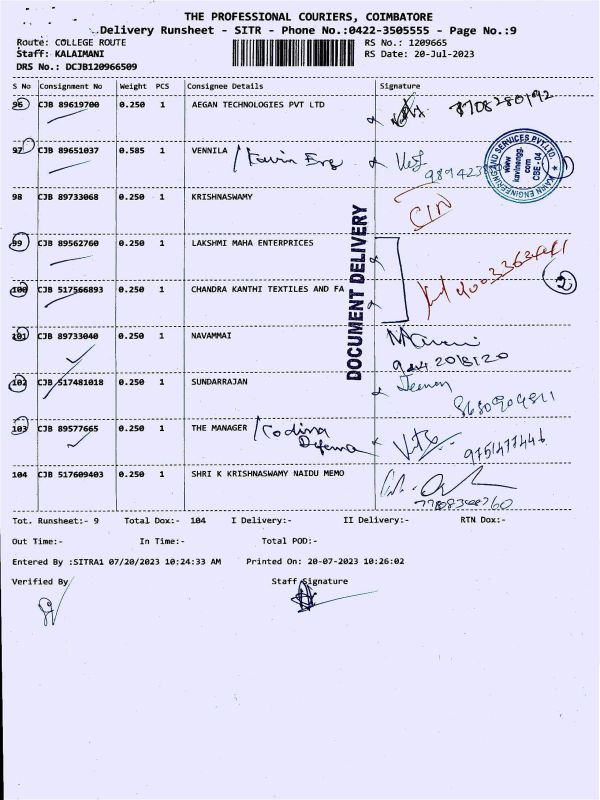 THE PROFESSIONAL COURIERS, COIMBATORE
Delivery Runsheet - SITR - Phone No.:0422-3505555 - Page No.:9
Route: COLLEGE ROUTE RS No.: 1209665
Staff: KALAIMANI RS Date: 20-Jul-2023
DRS No.: DCJB120966509
S No Consignment No Weight PCS Consignee Details Signature
96 CJB 89619700 0.250 1 AEGAN TECHNOLOGIES PVT LTD 7708280192
97 CJB 89651037 0.585 1 VENNILA / Kavin Eng
KAVIN ENGINEERING AND SERVICES PVT.LTD.
www
kavinengg.
com
CBE - 04
98 CJB 89733068 0.250 1 KRISHNASWAMY
99 CJB 89562760 0.250 1 LAKSHMI MAHA ENTERPRICES
DOCUMENT DELIVERY
2
100 CJB 517566893 0.250 1 CHANDRA KANTHI TEXTILES AND FA
101 CJB 89733040 0.250 1 NAVAMMAI
102 CJB 517481018 0.250 1 SUNDARRAJAN
103 CJB 89577665 0.250 1 THE MANAGER / 9751477446
104 CJB 517609403 0.250 1 SHRI K KRISHNASWAMY NAIDU MEMO
Tot. Runsheet:- 9 Total Dox:- 104 I Delivery:- II Delivery:- RTN Dox:-
Out Time:- In Time:- Total POD:-
Entered By :SITRA1 07/20/2023 10:24:33 AM Printed On: 20-07-2023 10:26:02
Verified By Staff Signature